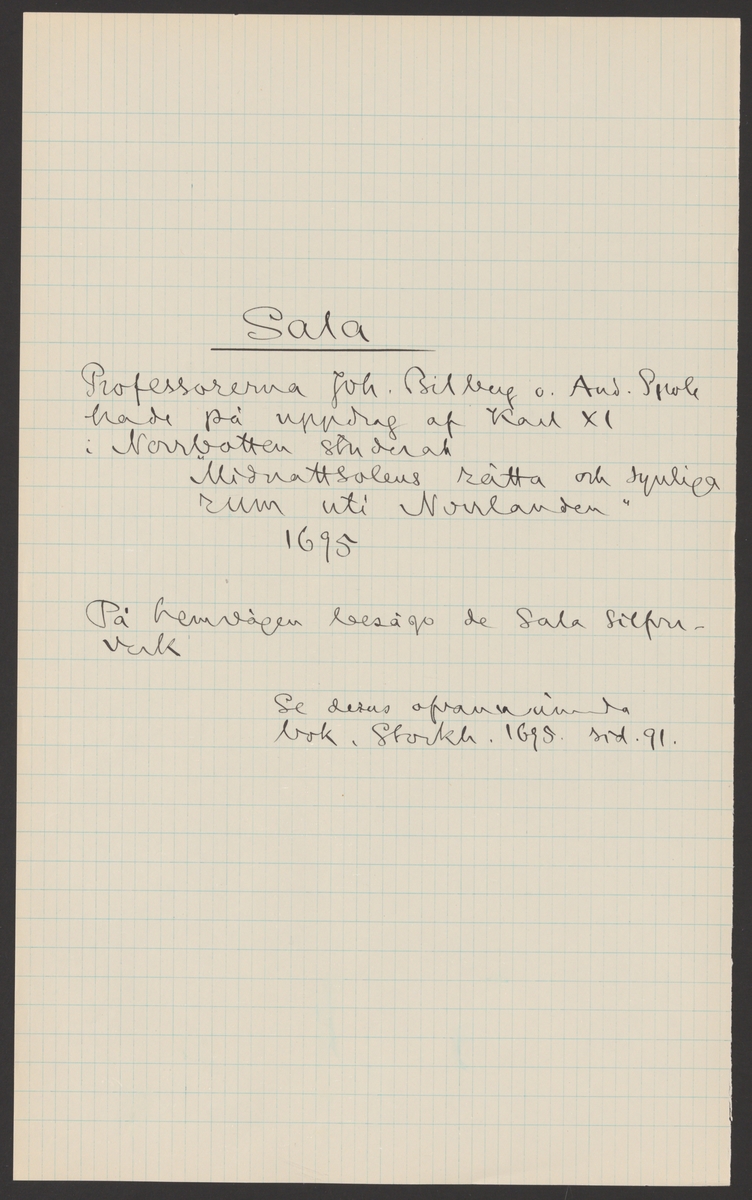 Sala
Professorerna Joh. Bilberg o. And. Spole
hade på uppdrag af Karl XI
i Norrbotten studerat
"Midnattsolens rätta och synliga
rum uti Norrlanden"
1695
På hemvägen besågo de Sala Silfver-
verk
Se deras ofvannämnda
bok, Stockh. 1695. sid. 91.